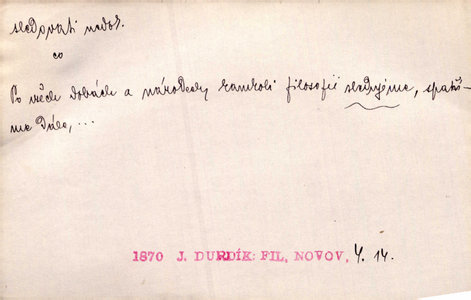 sledovati nedok.
co
Po všech dobách a národech, kamkoli filosofii sledujeme, spatří-
me dílo, ...
1870 J. DURDÍK: FIL, NOVOV, Y. 14.